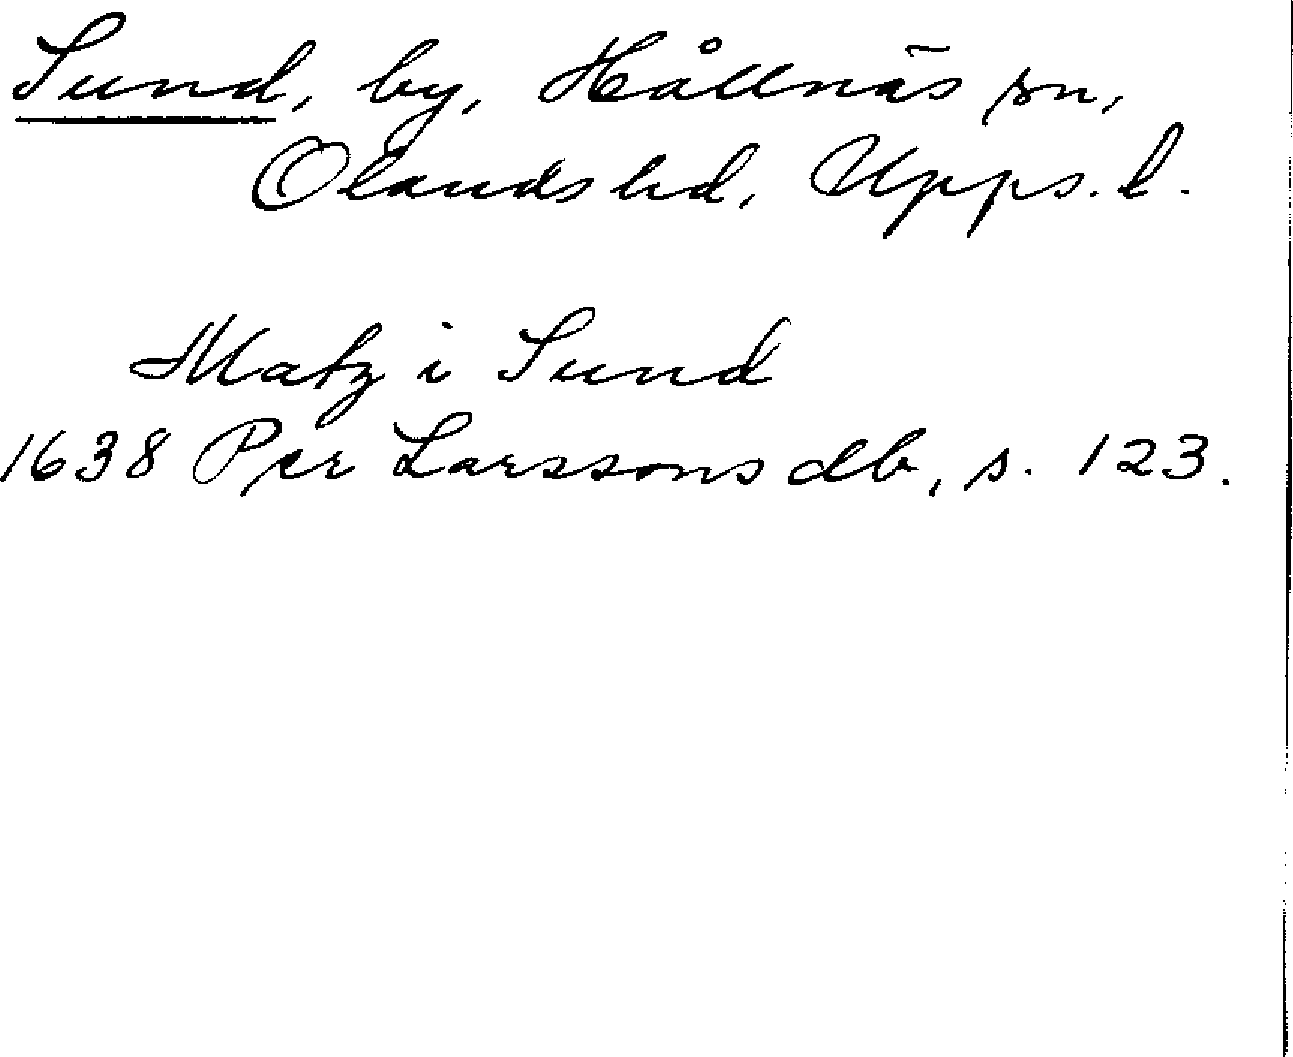 Sund, by, Hållnäs sn,
Olands hd, Upps. l.
Matz i Sund
1638 Per Larssons db, s. 123.